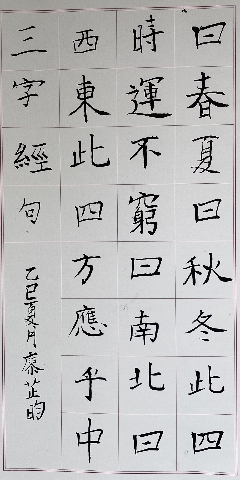 曰春夏曰秋冬此四
時運不窮曰南北曰
西東此四方應乎中
三字經句
乙巳夏月廖芷昀